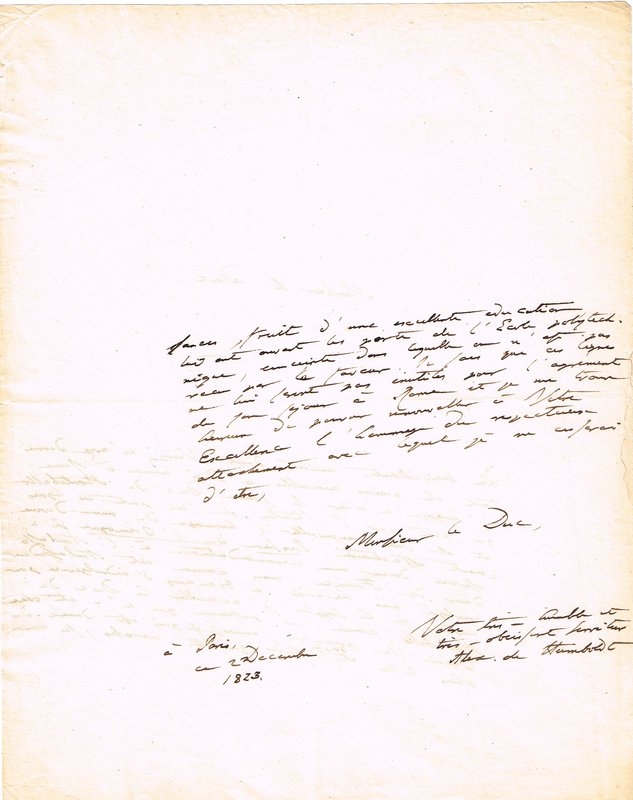 sances, fruit d'une excellente education
lui ont ouvert les portes de l'Ecole polytech-
nique, enceinte dans laquelle on n'est pas
recu par la faveur. Je sais que ces lignes
ne lui seront pas inutiles pour l'agrement
de son sejour à Rome et je me trouve
heureux de pouvoir renouveller à Votre
Excellence l'hommage du respectueux
attachement avec lequel je ne cesserai
d'etre,
Monsieur le Duc,
Votre très-humble et
très-obeissant serviteur
Alex. de Humboldt
à Paris,
ce 2 Décembre
1823.